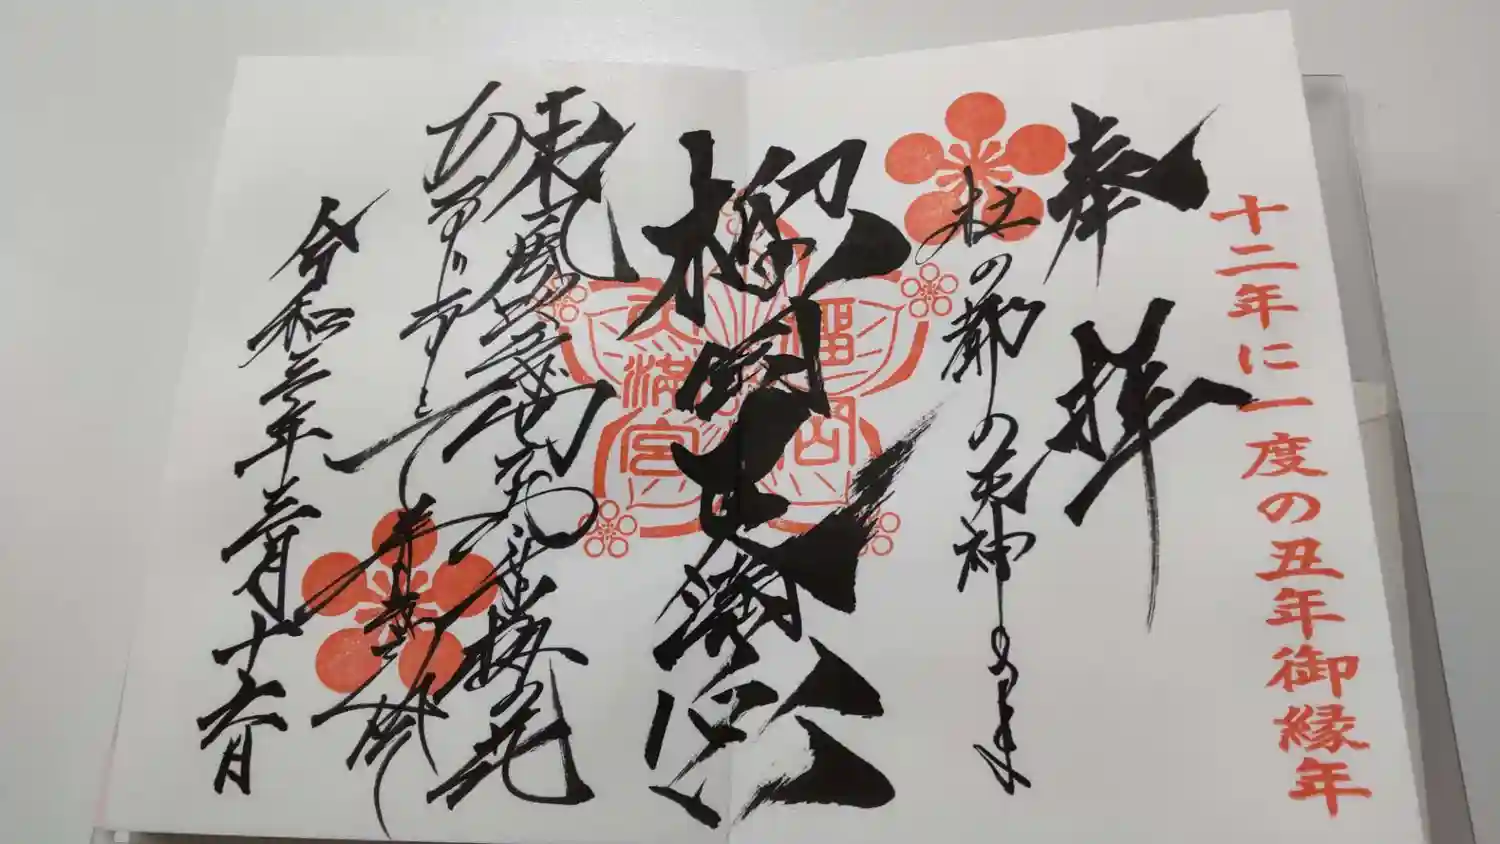 十二年に一度の丑年御縁年
奉拝
杜の都の天神さま
榴岡天満宮
榴岡
天満宮
東風吹かば匂ひおこせよ梅の花
あるじなしとて
令和三年三月十六日